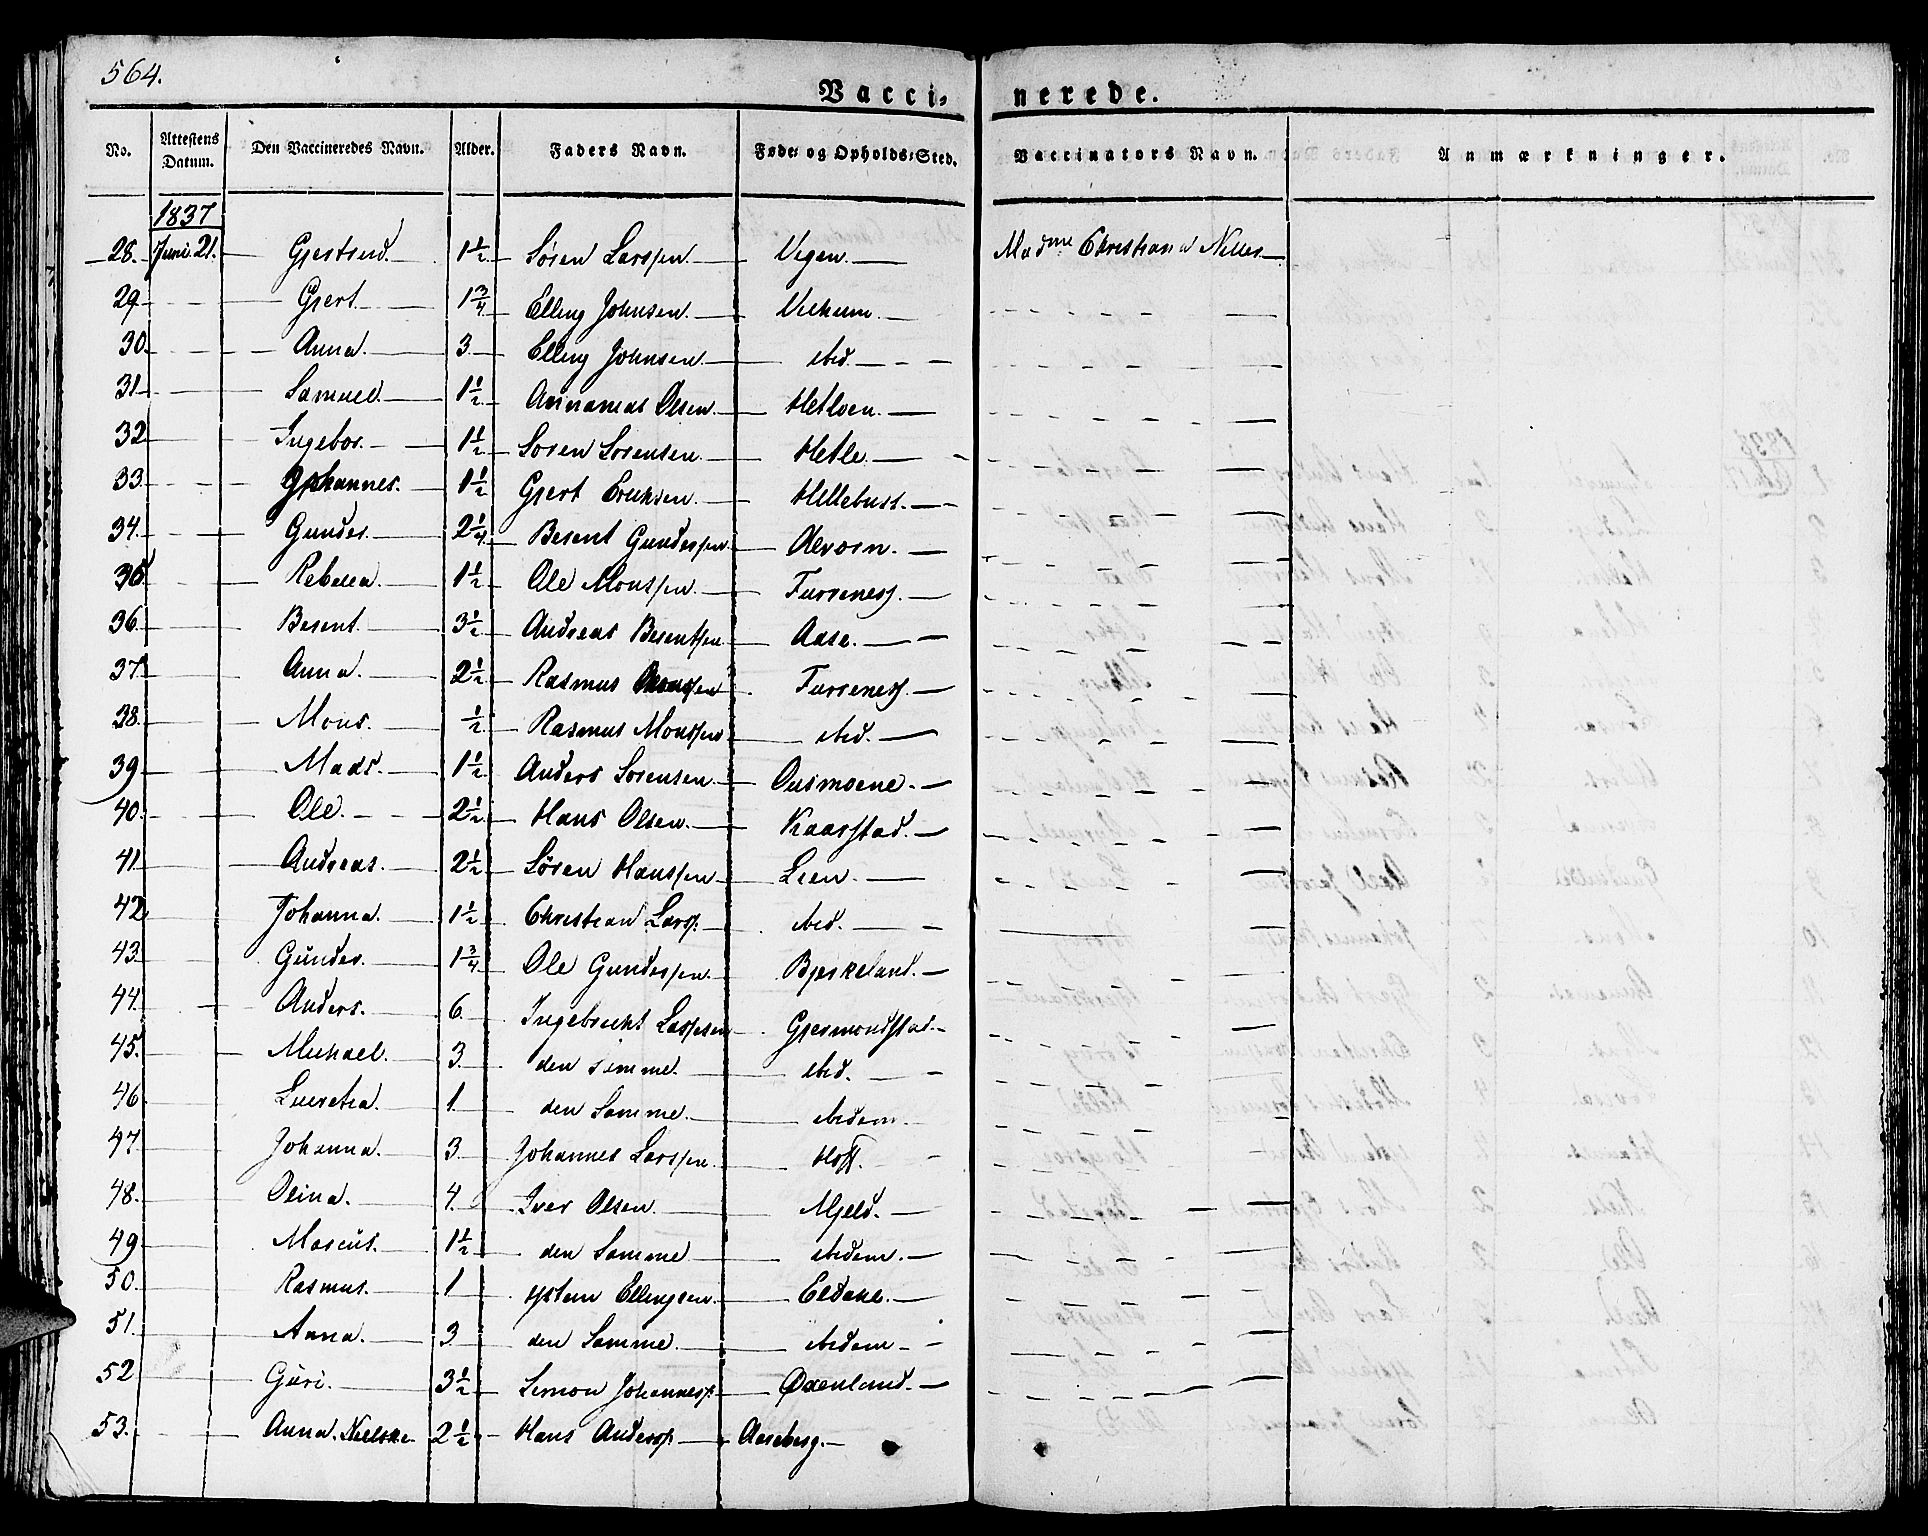 564.
Vacci- nerede.
No. Attestens Datum. Den Vaccineredes Navn. Alder. Faders Navn. Føde- og Opholds-Sted. Vaccinators Navn. Anmærkninger.
1837
28. Juni 21. Gjertrud. 1 1/2 Søren Larssen Vegen. Madme Christiana Nilles
29 Gjert 1 3/4 Elling Johnsen.
30. Anna. 3 Elling Johnsen ibid.
31. Samuel 1 1/2 Annanias Olsen Hetloen.
32 Ingebor. 1 1/2 Soren Sorensen Hetle
33. Johannes. 1 1/2 Gjert Ericksen Hellebust.
34. Gunder. 2 1/4 Berent Gunderssen
35 Rebecca. 1 1/2 Ole Monssen Furreness.
36. Berent 3 1/2 Andreas Berentssen Aase.
37. Anna. 2 1/2 Rasmus Furreness.
38. Mons. 1/2 Rasmus Monssen ibid.
39 Mads. 1 1/2 Anders Sorensen Ousmoene.
40. Ole. 2 1/2 Hans Olsen. Kaarstad.
41. Andreas. 2 1/2 Søren Hanssen Leen.
42. Johanna. 1 1/2 Christian Larss. ibid.
43. Gunder. 1 3/4 Ole Gunderssen. Bjerkeland.
44. Anders. 6 Ingebricht Larssen Gjermondstad.
45. Michael. 3. den samme. ibid.
46 Lucretia. 1. den Samme. ibidem.
47. Johanna. 3. Johannes Larssen Hoff.
48. Olina. 4. Iver Olsen. Mjeld.
49 Marcus. 1 1/2 den Samme ibidem.
50. Rasmus. 1 Ellingsen
51. Anna. 3 den Samme. ibidem
52 Guri. 3 1/2 Simon Johanness. Oxenland.
53. Anna. 2 1/2 Hans Anderss. Aareberg.